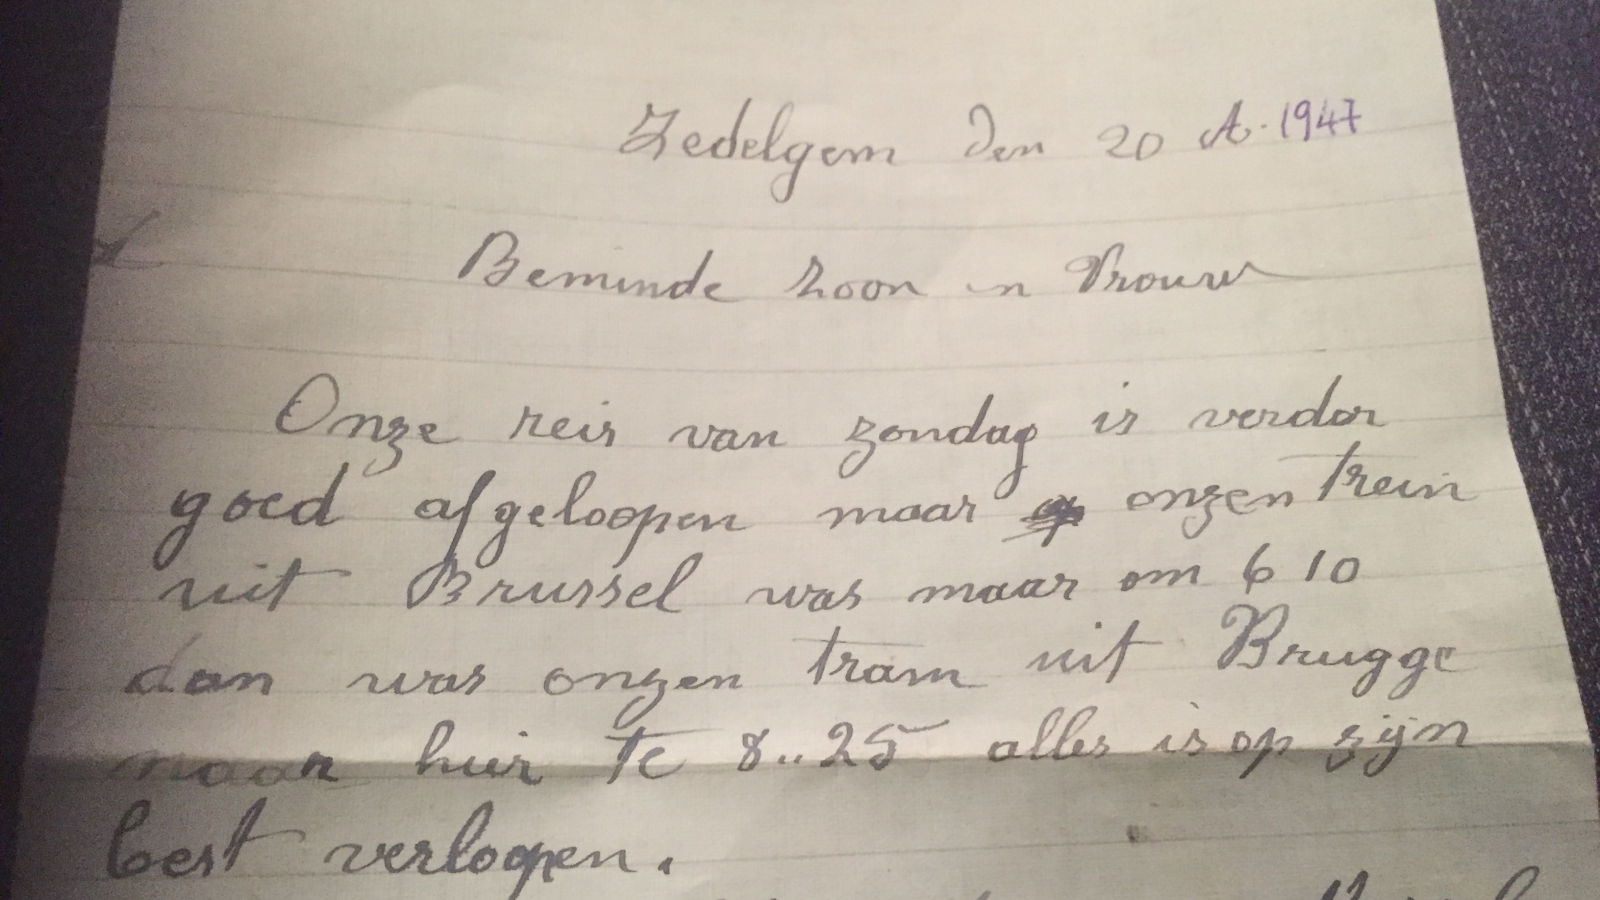 Zedelgem den 20 A. 1947
Beminde zoon en Vrouw
Onze reis van zondag is verder
goed afgeloopen maar onzen trein
uit Brussel was maar om 6 10
dan was onzen tram uit Brugge
maar hier te 8..25 alles is op zijn
best verloopen.